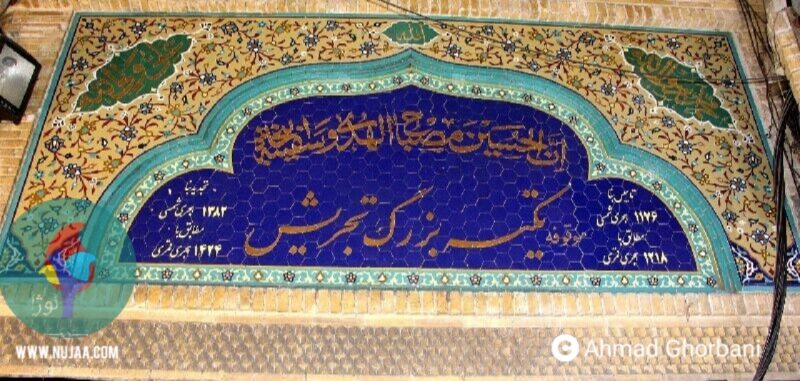 الله
ان الحسین مصباح الهدی و سفینة النجاة
موقوفه
تکیه بزرگ تجریش
تاسیس بنا
۱۱۷۶ هجری شمسی
مطابق با
۱۲۱۸ هجری قمری
تجدید بنا
۱۳۸۲ هجری شمسی
مطابق با
۱۴۲۴ هجری قمری
نوژا
WWW.NUJAA.COM
© Ahmad Ghorbani